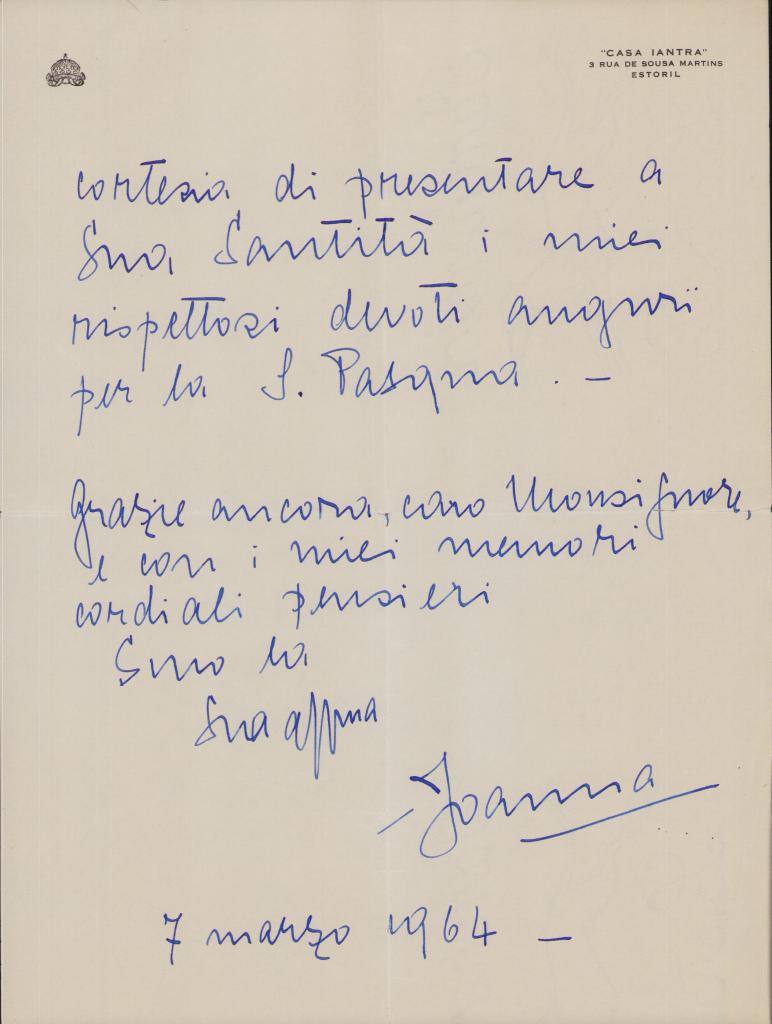 "CASA IANTRA"
3 RUA DE SOUSA MARTINS
ESTORIL
cortesia di presentare a
Sua Santità i miei
rispettosi devoti auguri
per la S. Pasqua. –
Grazie ancora, caro Monsignore,
e con i miei memori
cordiali pensieri
Sono la
Sua affma
– Joanna
7 marzo 1964 –